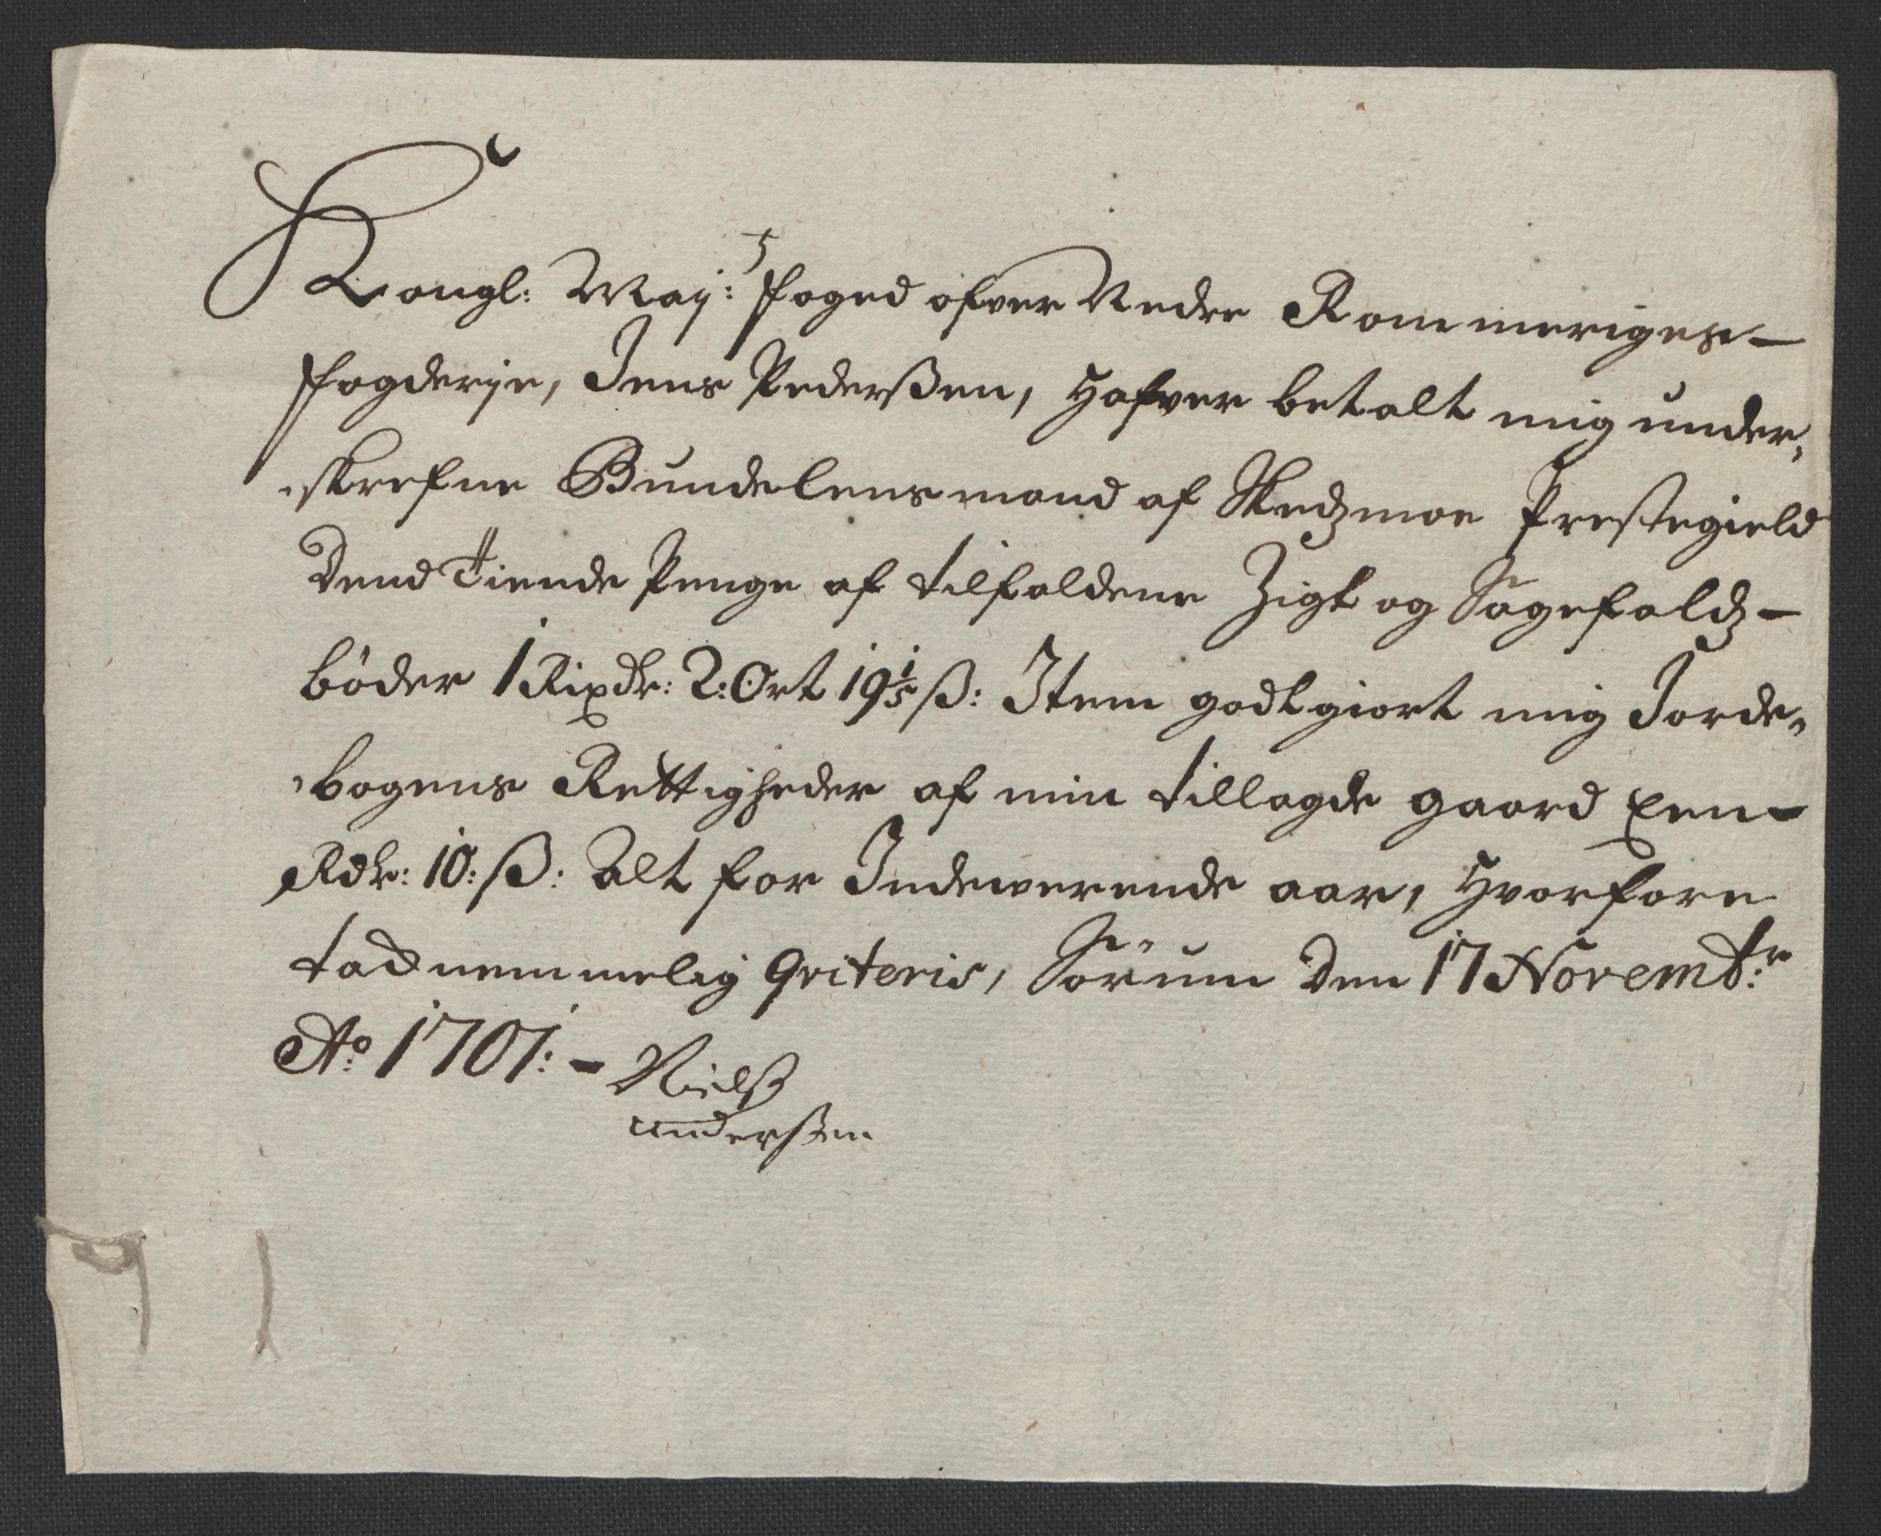 Kongl: Maij:ˢ foged ofver Nedre Rommeriges
fogderje, Jens Pederßen, Hafver betalt mig under,
skrefne Bundelensmand af Skedzmoe Prestegield
Dend Tiende Penge af tilfaldene Zigt og Sagefaldz-
böder 1 Rixdr: 2: Ort 19 1/5 ß: Item godtgiort mig Jorde,
bogens Rettigheder af min tillagde gaard Een
Rdr: 10: ß: Alt for Indeverende aar, Hvorfore
tachnemmelig Qviteris, Sörum Den 17 Novembr:
Ao 1701:-
Nielß
anderßen